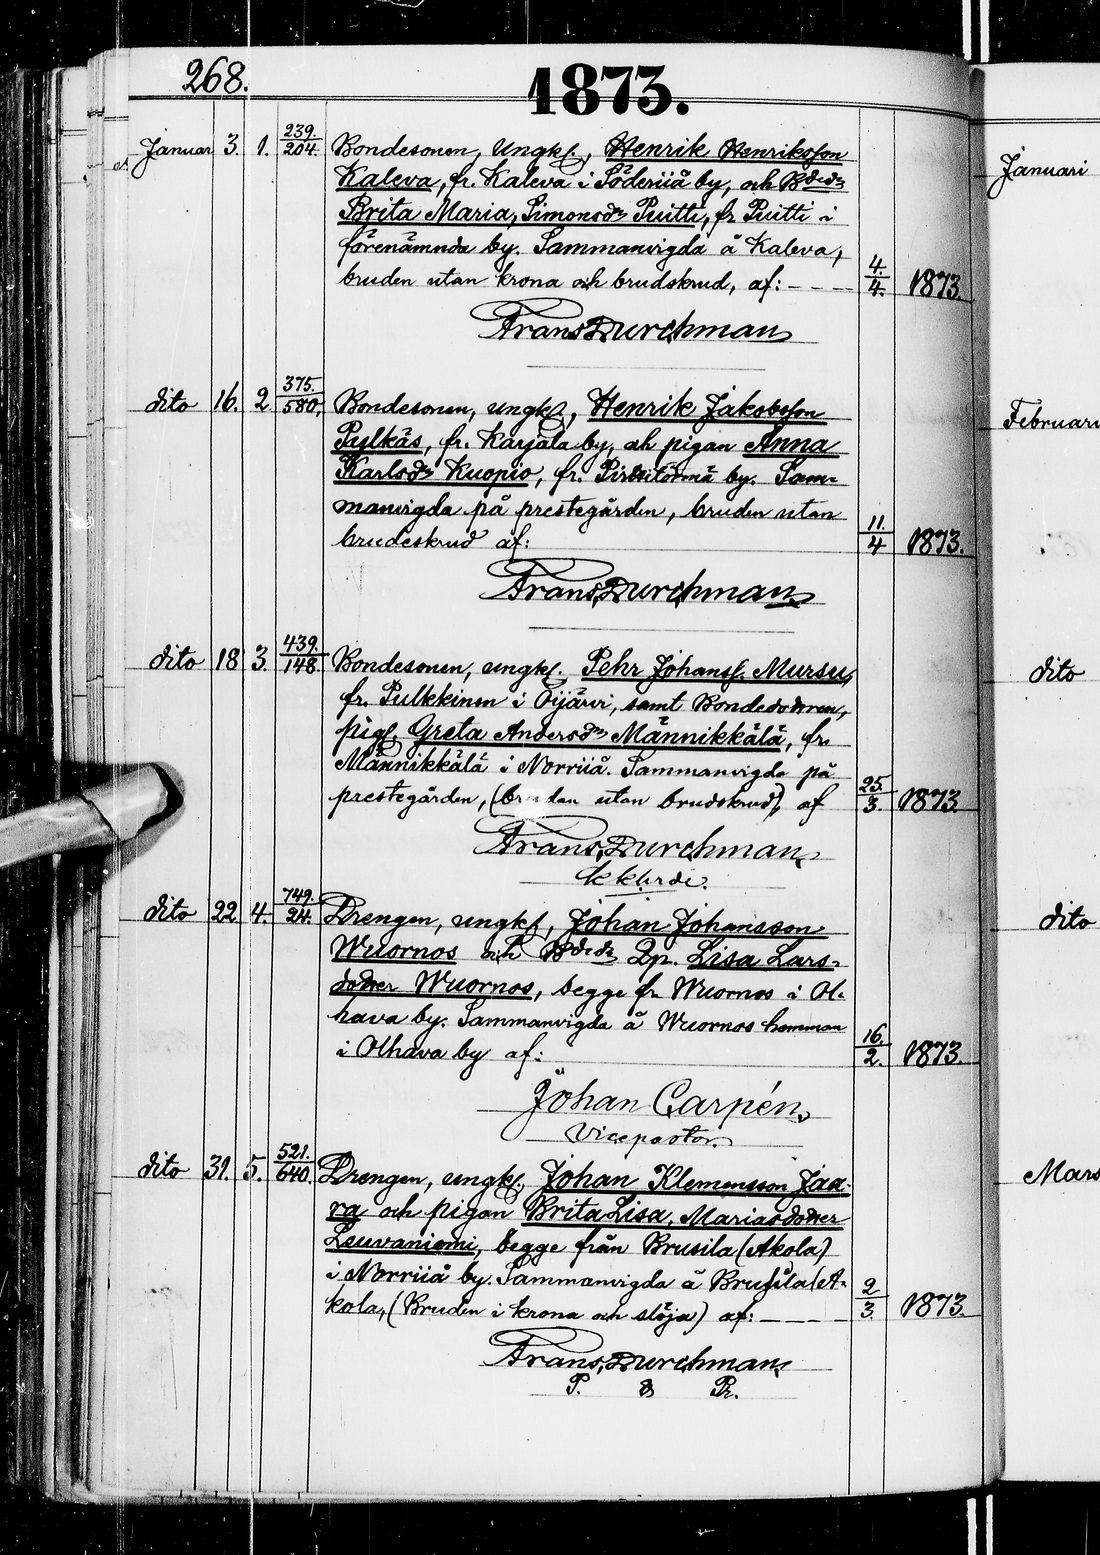 268.
1873.
Januari 3. 1. 239./204. Bondesonen, Ungkl, Henrik Henriksson
Kaleva, fr. Kaleva i Söderiiå by, och Bdedr
Brita Maria, Simonsdr Puitti, fr. Puitti i
förenämnda by. Sammanvigda å Kaleva,
bruden utan krona och brudskrud, af: 4./4. 1873.
Frans Durchman
dito 16. 2. 375./580. Bondesonen, ungkl, Henrik Jakobsson
Pylkäs, fr. Karjala by, och pigan Anna
Karlsdr Kuopio, fr. Pirttitörmä by. Sam-
manvigda på prestegården, bruden utan
brudeskrud af: 11./4 1873.
Frans Durchman
dito 18 3. 439./148. Bondesonen, ungkl. Pehr Johansf. Mursu,
fr. Pulkkinen i Oijärvi, samt Bondedottren,
pigf. Greta Andersdr Männikkälä, fr.
Männikkälä i Norriiå. Sammanvigda på
prestegården, (bruden utan brudskrud), af 25./3. 1873.
Frans Durchman,
kkhrde.
dito 22 4. 749./24. Drengen, ungkl, Johan Johansson
Wuornos och Bdedr Qp. Lisa Lars-
dotter Wuornos, begge fr. Wuornos i Ol-
hava by. Sammanvigda å Wuornos hemman
i Olhava by af: 16./2. 1873.
Johan Carpén,
Vicepastor.
dito 31. 5. 521./640. Drengen, ungkl. Johan Klemensson Jaa-
ra och pigan Brita Lisa, Mariasdotter
Leuvaniemi, begge från Brusila (Akola)
i Norriiå by. Sammanvigda å Brusila (A-
kola, (Bruden i krona och slöja) af: 2/3. 1873.
Frans Durchman,
P. & Pr.
Januari
Februari
dito
dito
Mars